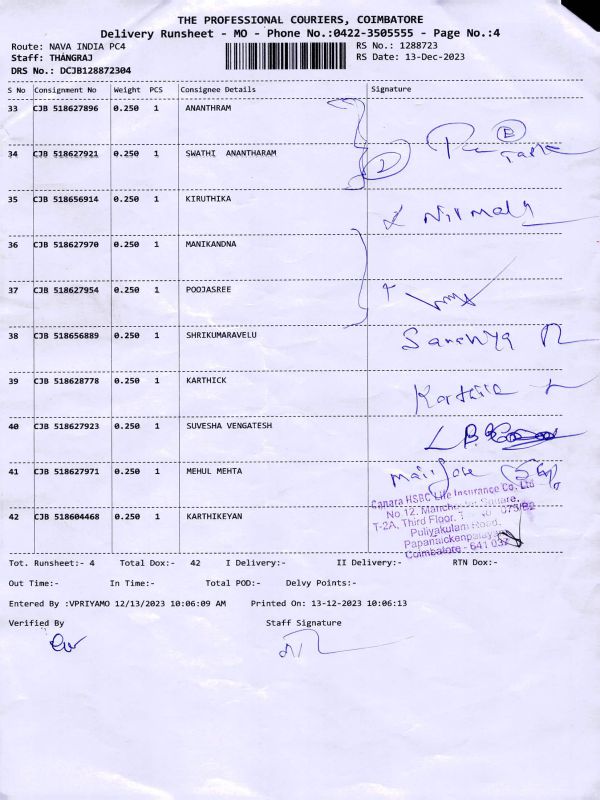 THE PROFESSIONAL COURIERS, COIMBATORE
Delivery Runsheet - MO - Phone No.:0422-3505555 - Page No.:4
Route: NAVA INDIA PC4 RS No.: 1288723
Staff: THANGRAJ RS Date: 13-Dec-2023
DRS No.: DCJB128872304
S No Consignment No Weight PCS Consignee Details Signature
33 CJB 518627896 0.250 1 ANANTHRAM
34 CJB 518627921 0.250 1 SWATHI ANANTHARAM 2
35 CJB 518656914 0.250 1 KIRUTHIKA Nirmala
36 CJB 518627970 0.250 1 MANIKANDNA
37 CJB 518627954 0.250 1 POOJASREE
38 CJB 518656889 0.250 1 SHRIKUMARAVELU
39 CJB 518628778 0.250 1 KARTHICK
40 CJB 518627923 0.250 1 SUVESHA VENGATESH
41 CJB 518627971 0.250 1 MEHUL MEHTA
Canara HSBC Life Insurance Co. Ltd
No 12, Square,
T-2A, Third Floor,
42 CJB 518604468 0.250 1 KARTHIKEYAN
Puliyakulam Road,
Papanaickenpalayam
Coimbatore - 641 037
Tot. Runsheet:- 4 Total Dox:- 42 I Delivery:- II Delivery:- RTN Dox:-
Out Time:- In Time:- Total POD:- Delvy Points:-
Entered By :VPRIYAMO 12/13/2023 10:06:09 AM Printed On: 13-12-2023 10:06:13
Verified By Staff Signature